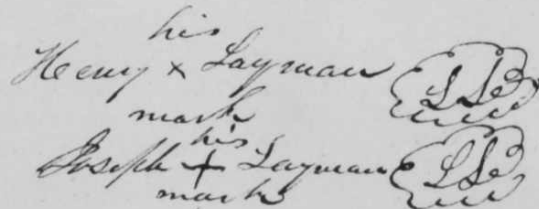 his
Henry x Layman LS
mark
his
Joseph + Layman LS
mark